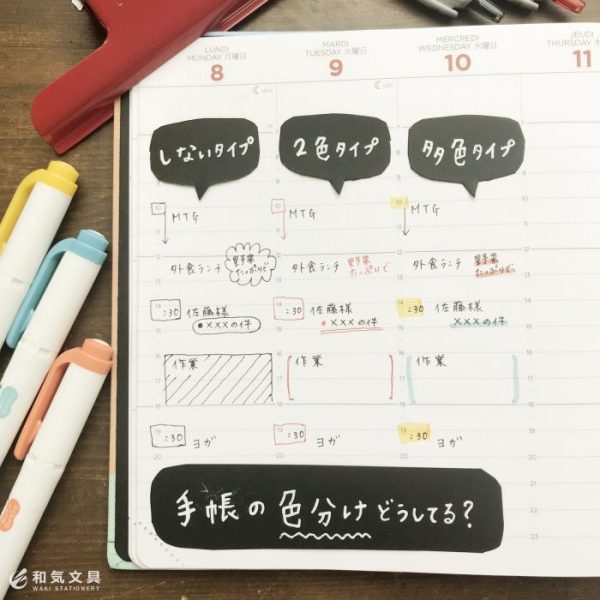 LUNDI
MONDAY 月曜日
8
MARDI
TUESDAY 火曜日
9
MERCREDI
WEDNESDAY 水曜日
10
JEUDI
THURSDAY 木曜日
11
しないタイプ
2色タイプ
多色タイプ
10 MTG
10 MTG
10 MTG
外食ランチ 野菜たっぷりで
外食ランチ 野菜たっぷりで
外食ランチ 野菜たっぷりで
14 :30 佐藤様
●×××の件
14 :30 佐藤様
●×××の件
14 :30 佐藤様
×××の件
作業
作業
作業
19 :30 ヨガ
19 :30 ヨガ
19 :30 ヨガ
手帳の色分けどうしてる?
和気文具
WAKI STATIONERY